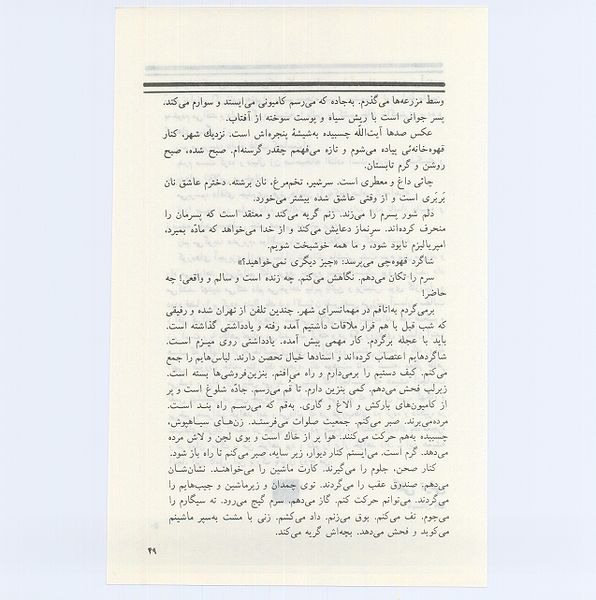 وسط مزرعه‌ها می‌گذرم. به‌جاده که می‌رسم کامیونی می‌ایستد و سوارم می‌کند.
پسر جوانی است با ریش سیاه و پوست سوخته از آفتاب.
عکس صدها آیت‌الله چسبیده به‌شیشهٔ پنجره‌اش است. نزدیك شهر، کنار
قهوه‌خانه‌ئی پیاده می‌شوم و تازه می‌فهمم چقدر گرسنه‌ام. صبح شده، صبح
روشن و گرم تابستان.
چائی داغ و معطری است. سرشیر، تخم‌مرغ، نان برشته. دخترم عاشق نان
بَربَری است و از وقتی عاشق شده بیشتر می‌خورد.
دلم شور پسرم را می‌زند. زنم گریه می‌کند و معتقد است که پسرمان را
منحرف کرده‌اند. سرنماز دعایش می‌کند و از خدا می‌خواهد که مائده بمیرد،
امپریالیزم نابود شود، و ما همه خوشبخت شویم.
شاگرد قهوه‌چی می‌پرسد: «چیز دیگری نمی‌خواهید؟»
سرم را تکان می‌دهم. نگاهش می‌کنم. چه زنده است و سالم و واقعی! چه
حاضر!
برمی‌گردم به‌اتاقم در مهمانسرای شهر. چندین تلفن از تهران شده و رفیقی
که شب قبل با هم قرار ملاقات داشتیم آمده رفته و یادداشتی گذاشته است.
باید با عجله برگردم. کار مهمی پیش آمده. یادداشتی روی میزم است.
شاگردهایم اعتصاب کرده‌اند و استادها خیال تحصن دارند. لباس‌هایم را جمع
می‌کنم. کیف دستیم را برمی‌دارم و راه می‌افتم. بنزین‌فروشی‌ها بسته است.
زیرلب فحش می‌دهم. کمی بنزین دارم. تا قُم می‌رسم. جادّه شلوغ است و پر
از کامیون‌های بارکش و الاغ و گاری. به‌قم که می‌رسم راه بند است.
مرده‌می‌برند. صبر می‌کنم. جمعیت صلوات می‌فرستد. زن‌های سیاهپوش،
چسبیده به‌هم حرکت می‌کنند. هوا پر از خاك است و بوی لجن و لاش مرده
می‌دهد. گرم است. می‌ایستم کنار دیوار، زیر سایه، صبر می‌کنم تا راه باز شود.
کنار صحن، جلوم را می‌گیرند. کارت ماشین را می‌خواهند. نشان‌شان
می‌دهم. صندوق عقب را می‌گردند. توی چمدان و زیرماشین و جیب‌هایم را
می‌گردند. می‌توانم حرکت کنم. گاز می‌دهم. سرم گیج می‌رود. ته سیگارم را
می‌جوم. تف می‌کنم. بوق می‌زنم. داد می‌کشم. زنی با مشت به‌سپر ماشینم
می‌کوبد و فحش می‌دهد. بچه‌اش گریه می‌کند.
۴۹